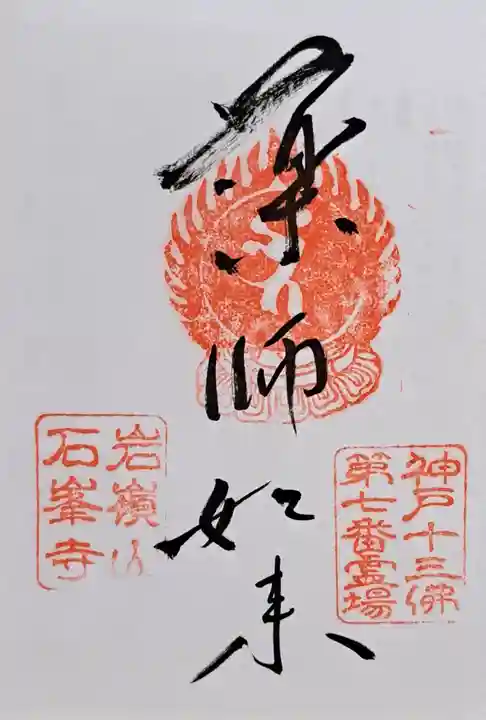 神戸十三佛
第七番霊場
薬師如来
岩嶺山
石峯寺